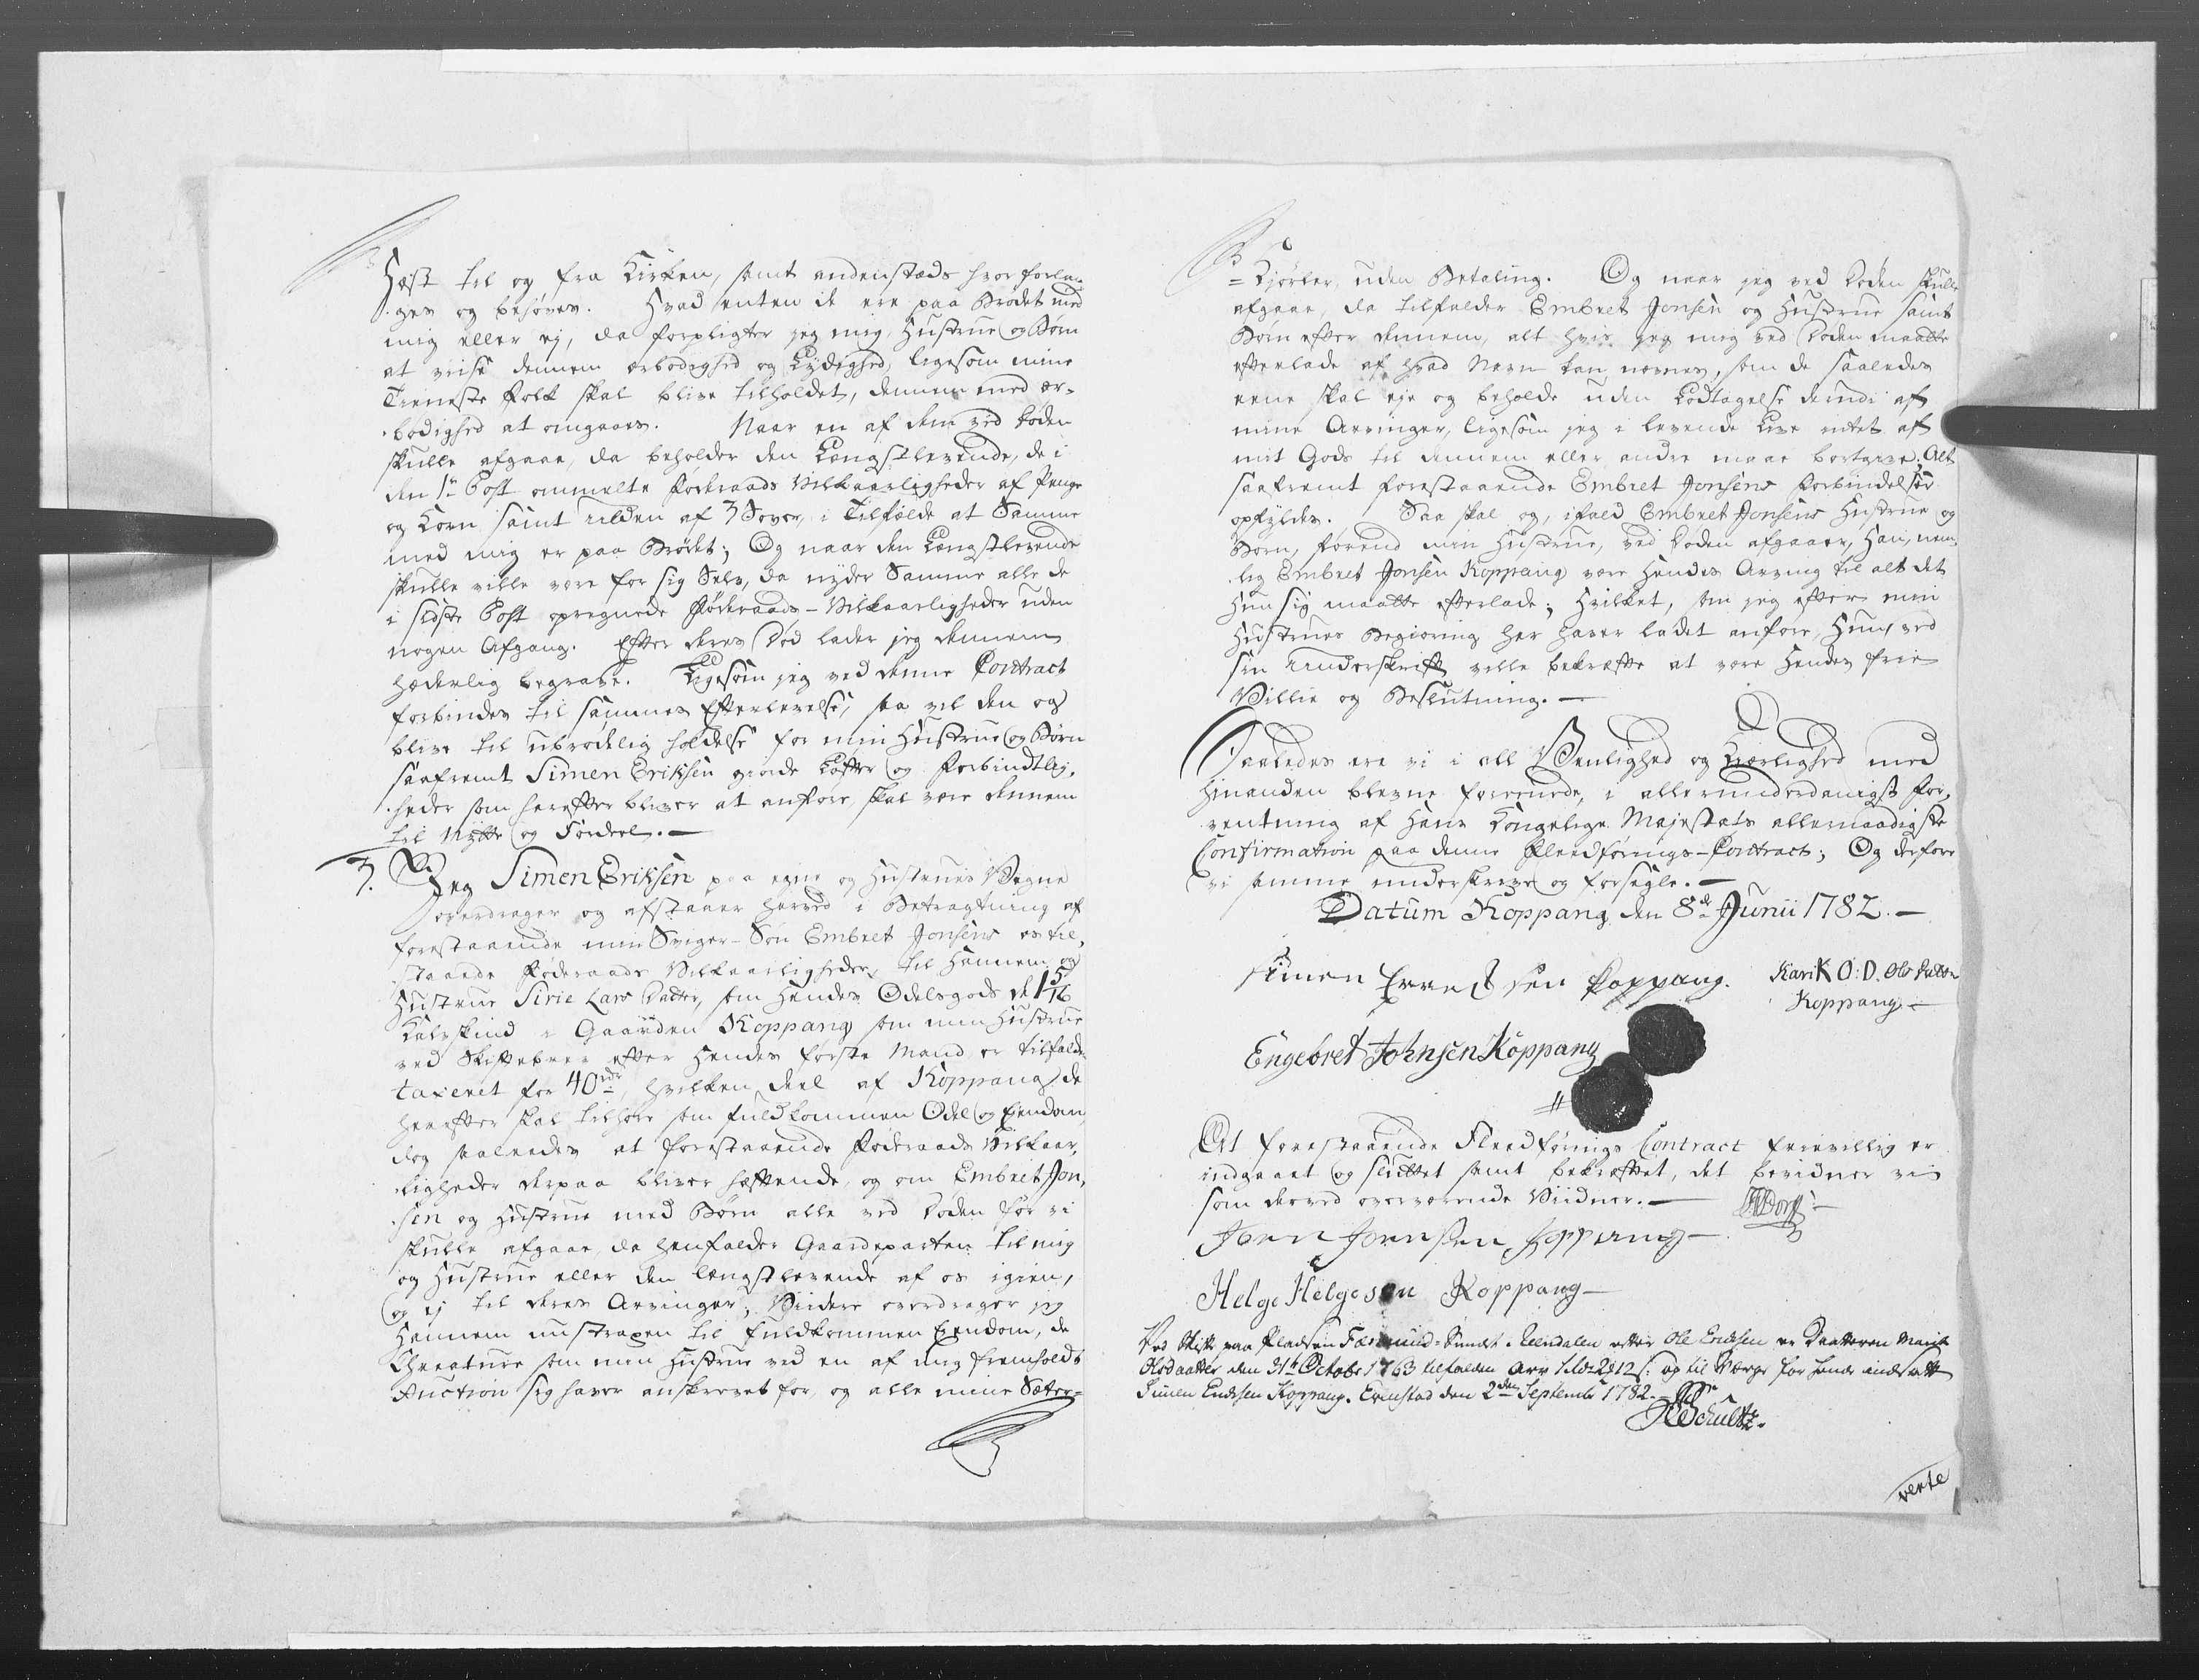 Hest til og fra Kirken, samt andenstæds hvor forlan-
ges og behøves. Hvad enten de ere paa Brødet med
mig eller ej, da forpligter jeg mig, Hustrue og Børn
at viise dennem ærbødighed og Lydighed, ligesom mine
Tieneste Folk skal blive tilholdet, dennem med ær-
bødighed at omgaaes. Naar en af dem ved Døden
skulle afgaae, da beholder den Længstlevende, de i
den 1te Post ommelte Føderaads Vilkaarligheder af Penge
og Korn samt Ulden af 3 Sover, i Tilfælde at Samme
med mig er paa Brødet; Og naar den Længstlevende
skulle ville være for sig Selv, da nyder Samme alle de
i sidste Post opregnede Føderaads-Vilkaarligheder uden
nogen Afgang. Efter deres Død lader jeg dennem
hæderlig begrave. Ligesom jeg ved denne Contract
forbindes til sammes Efterlevelse, saa vel den og
blive til ubrødelig holdelse for min Hustrue og Børn
saafremt Simen Eriksen giorde Løfter og Forbindtlig-
heder som herefter bliver at anføre, skal være dennem
til Nÿtte og Fordeel.—
3. Jeg Simen Eriksen paa egne og Hustrues Vegne
overdrager og afstaaer herved i Betragtning af
forestaaende min Sviger-Søn Embret Jonsens es til-
staaede Føderaads Vilkaarligheder, til Hannem og
Hustrue Sirie Lars Datter, som Hendes Odelsgods de 1 5/16
Kalvskind i Gaarden Koppang som min Hustrue
ved Skiftebrev efter Hendes første Mand er tilfalden
taxeret for 40 rdr, hvilken deel af Koppang de
herefter skal tilhøre som fuldkommen Odel og Eendom,
dog saaledes at forestaaende Føderaads Vilkaar-
ligheder derpaa bliver hæftende, og om Embret Jon-
sen og Hustrue med Børn alle ved Døden før vi
skulle afgaae, da henfalder Gaardeparten til mig
og Hustrue eller den længstlevende af os igien,
og ej til deres Arvinger; Viidere overdrager jeg
Hannem til fuldkommen Eendom, de
Creature som min Hustrue ved en af mig fremholdt
Auction sig haver anskrevet for, og alle mine Sæter-
=Kjørler, uden Betaling. Og naar jeg ved Døden skulle
afgaae, da tilfalder Embret Jonsen og Hustrue samt
Børn efter dennem, alt hvis jeg mig ved Døden maatte
efterlade af hvad Navn kan nævnes, som de saaledes
eene skal eje og beholde uden Lodtagelse deri af
mine Arvinger, ligesom jeg i levende Live intet af
mit Gods til dennem eller andre maae bortgive; Alt
saafremt forestaaende Embret Jonsens Forbindelser
opfyldes. Saa skal og, ifald Embret Jonsens Hustrue og
Børn, forend min Hustrue, ved Døden afgaaer, Han, nem-
lig Embret Jonsen Koppang være Hendes Arving til alt det
Hun sig maatte efterlade; Hvilket, som jeg efter min
Hustrues Begiering her haver ladet anføre, Hun, ved
sin Underskrift ville bekræfte at være Hendes frie
Villie og Beslutning.—
Saaledes ere vi i all Venlighed og Kierlighed med
hinanden blevne foreenede, i allerunderdanigst for-
ventning af Hans Kongelige Majestæts allernaadigste
Confirmation paa denne Fleedførings-Contract; Og derfore
vi samme underskreve og forsegle.—
Datum Koppang den 8de Junii 1782.—
Simen Koppang. Kari K O:D. Ols Datter
Koppang.—
Engebret Johnsen Koppang
At forestaaende Fleedførings Contract frievillig er
indgaaet og sluttet samt bekræftet, det bevidner vi
som derved overværende Viidner.—
Joen Joensen Koppang—
Helge Helgesøn Koppang—
Ved Skifte paa Pladsen Fæmund=Sundet i Rendalen efter Ole Ericksen er Daatteren Marit
Olsdaatter den 31te October 1763 tilfalden Arv 12 s: og til Værge for hende indsatt
Simen Ericksen Koppang. Evenstad den 2den Septembr 1782.—
Schultz.
verte